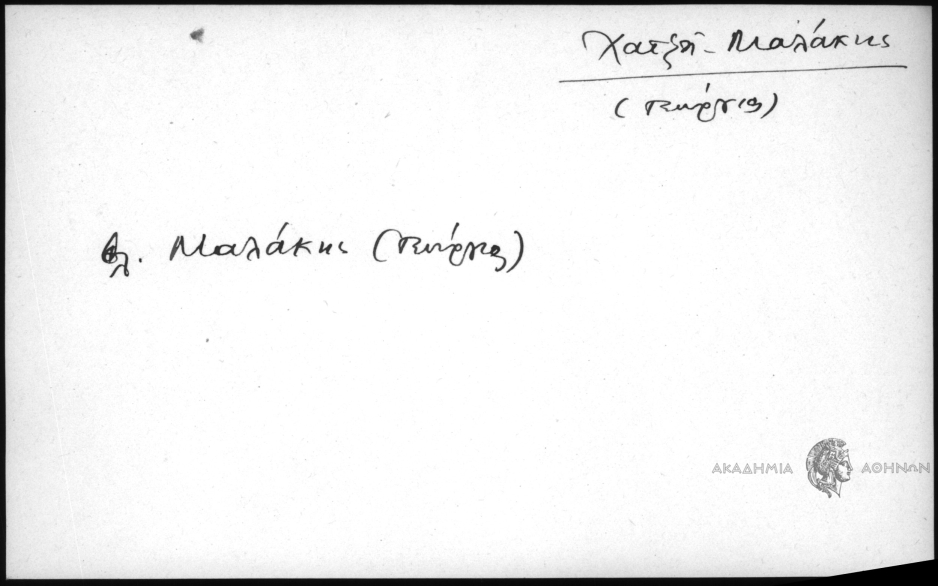 Χατζῆ-Μαλάκης
(Γεώργιος)
βλ. Μαλάκης (Γεώργιος)
ΑΚΑΔΗΜΙΑ ΑΘΗΝΩΝ